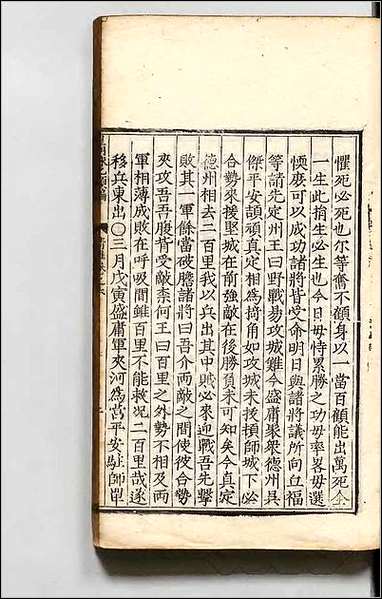 懼死必死也尔等奮不顧身以一當百顧能出萬死全
一生此捐生必生也今日毋恃累勝之功毋率畧毋選
愞庻可以成功諸將皆受命明日與諸將議所向丘福
等請先定州王曰野戰易攻城難今盛庸聚衆德州吳
傑平安頡頏真定相爲掎角如攻城未拔頓師城下必
合勢來援堅城在前強敵在後勝負未可知矣今真定
德州相去二百里我以兵出其中賊必來迎戰吾先擊
敗其一軍餘當破膽諸將曰吾介兩敵之間使彼合勢
夾攻吾吾腹背受敵柰何王曰百里之外勢不相及兩
軍相薄成敗在呼吸間雖百里不能救况二百里哉遂
移兵東出〇三月戊寅盛庸軍夾河爲營平安駐師單